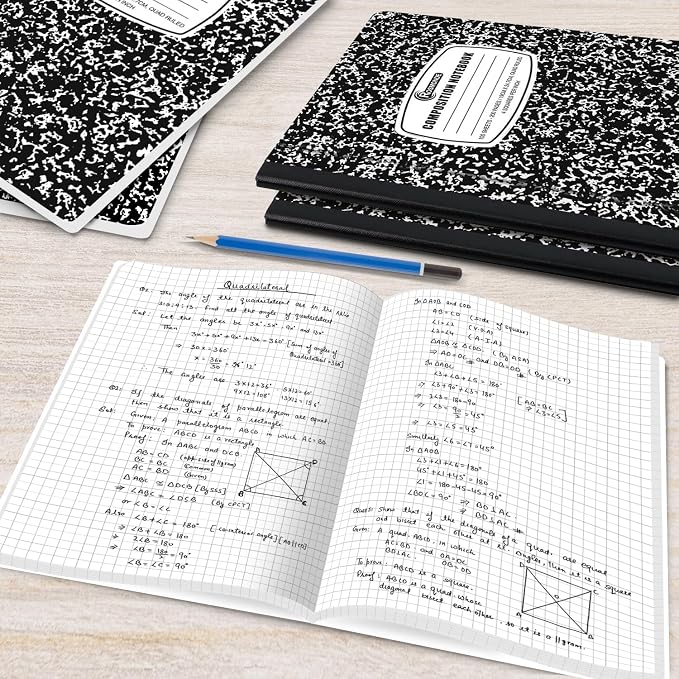 QUAD RULED
COMPOSITION NOTEBOOK
100 SHEETS • 200 PAGES
Quadrilateral
Q1: The angle of the quadrilateral are in the ratio
3:5:9:13. find all the angle of quadrilateral
Sol: Let the angles be 3x° 5x° 9x° and 13x°
Then 3x° + 5x° + 9x° + 13x = 360° [Sum of angles of
Quadrilateral = 360]
⇒ 30x = 360°
x = 360/30 = 36° 12°
The angles are 3×12=36° 5×12=60°
9×12=108° 13×12=156°
Q2: If the diagonals of parallelogram are equal
then show that it is a rectangle.
Sol: Given: A parallelogram ABCD in which AC = BD
To prove: ABCD is a rectangle
Proof: In ΔABC and DCB
AB = CD (opp. side of ||gram)
BC = BC (Common)
AC = BD (Given)
ΔABC ≅ ΔDCB [By SSS]
⇒ ∠ABC = ∠DSB (By CPCT)
or ∠B = ∠C
Also ∠B + ∠C = 180°
⇒ ∠B + ∠B = 180
⇒ 2∠B = 180
⇒ ∠B = 180/2 = 90°
∠B = ∠C = 90°
A
D
B
C
In ΔAOB and COD
AB = CD (Side of square)
∠1 = ∠2
∠3 = ∠4 (A.I.A)
ΔAOB ≅ ΔCOD (By ASA)
⇒ AO = OC ⇒ OB = OD (By CPCT)
∠3 + ∠B + ∠5 = 180°
⇒ ∠3 + 90° + ∠3 = 180° [AB = BC
⇒ 2∠3 = 180 - 90 ⇒ ∠3 = ∠5]
⇒ ∠3 = 90/2 = 45°
⇒ ∠3 = 45°
Similarly ∠6 = ∠7 = 45°
In ΔAOB
∠3 + ∠1 + ∠6 = 180°
45° + ∠1 + 45° = 180
∠1 = 180 - 45 - 45 = 90°
∠BOC = 90° ⇒ BO ⊥ AC
⇒ BD ⊥ AC
Ques: Show that if the diagonals of a quad. are equal
and bisect each other at rt. angles, then it is a square
Given: A quad. ABCD, in which
AC = BD and OA = OC
BD ⊥ AC, OB = OD
To prove: ABCD is a square.
Proof: ABCD is a quad. whose
diagonal bisect each other, so it is a ||gram.
D
C
O
A
B